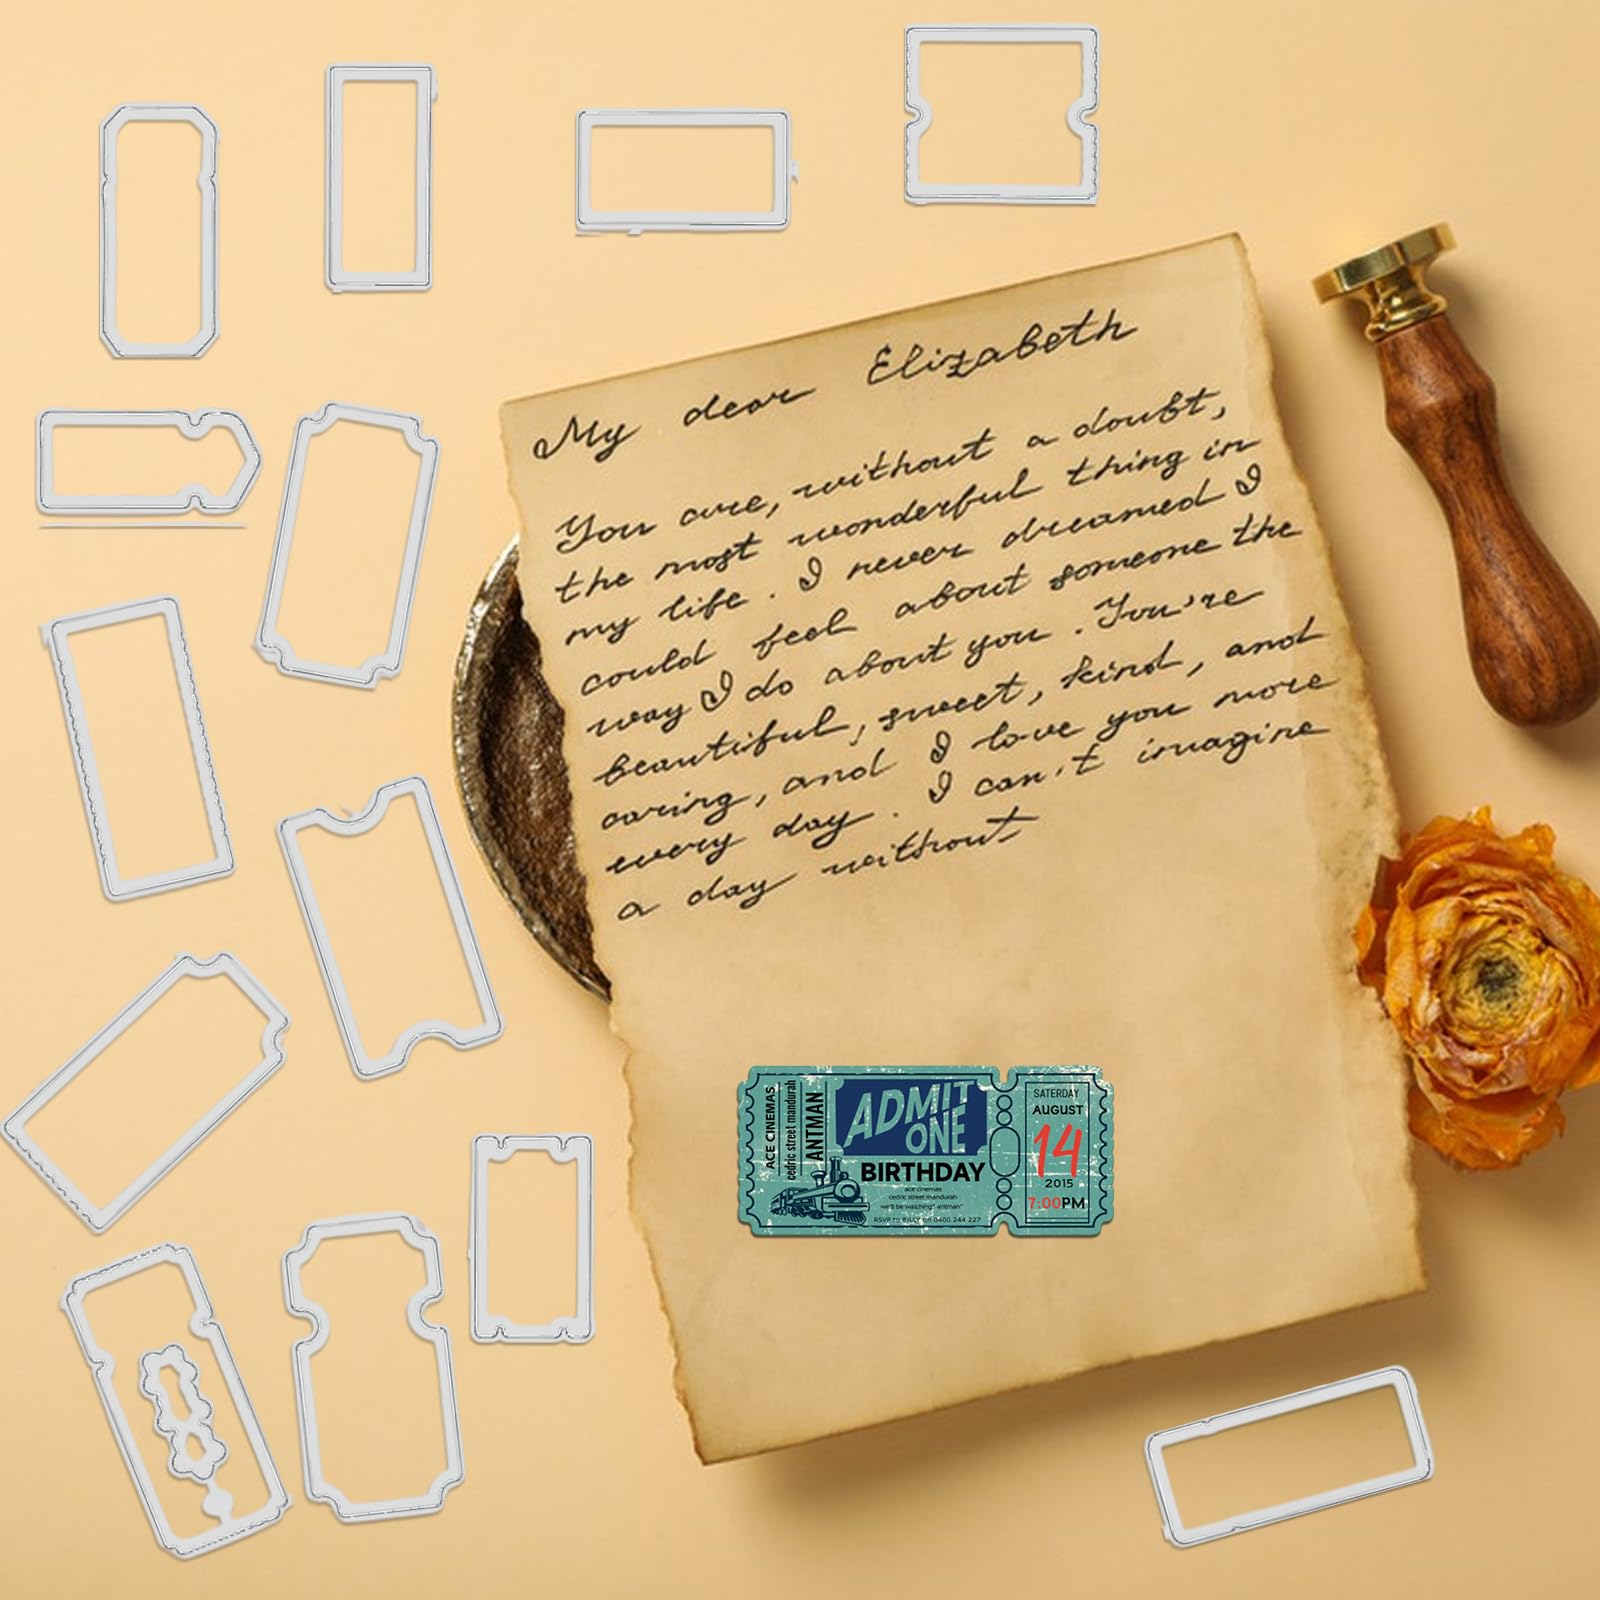 My dear Elizabeth
You are, without a doubt,
the most wonderful thing in
my life. I never dreamed I
could feel about someone the
way I do about you. You're
beautiful, sweet, kind, and
caring, and I love you more
every day. I can't imagine
a day without
ACE CINEMAS
cedric street mandurah
ANTMAN
ADMIT
ONE
BIRTHDAY
ace cinemas
cedric street mandurah
we'll be watching" antman"
RSVP to BILLY on 0400 244 227
SATERDAY
AUGUST
14
2015
7:00PM